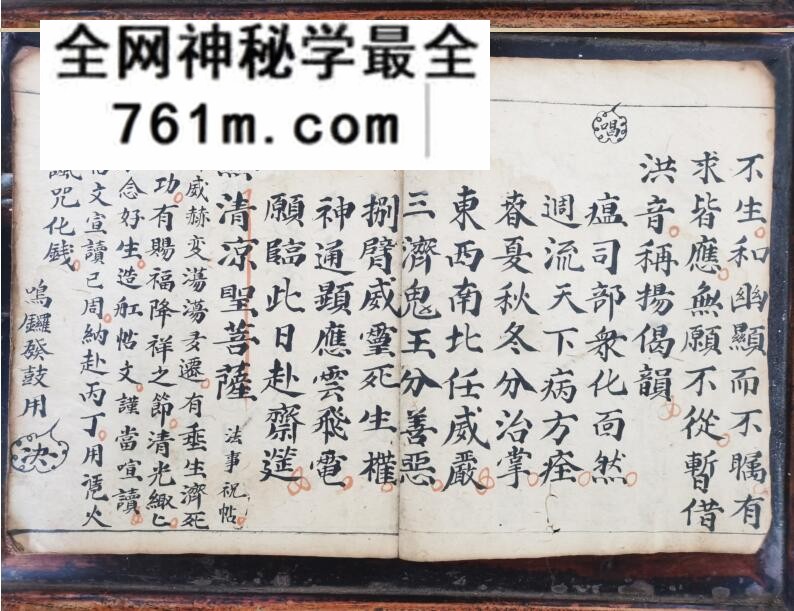 全网神秘学最全
761m.com
唱
不生和幽顯而不矚有
求皆應無願不從暫借
洪音稱揚偈韻
瘟司部衆化面然
週流天下病方痊
春夏秋冬分治掌
東西南北任威嚴
三濟鬼王分善惡
捌臂威靈死生權
神通顯應雲飛電
願臨此日赴齋筵
清凉聖菩薩
法事祝帖
威赫变蕩蕩 遷有垂生濟死
功有賜福降祥之節清光緲匕
念好生造舡帖文謹當宣讀
文宣讀已周納赴丙丁用 火
咒化銭
鳴鑼發鼓用